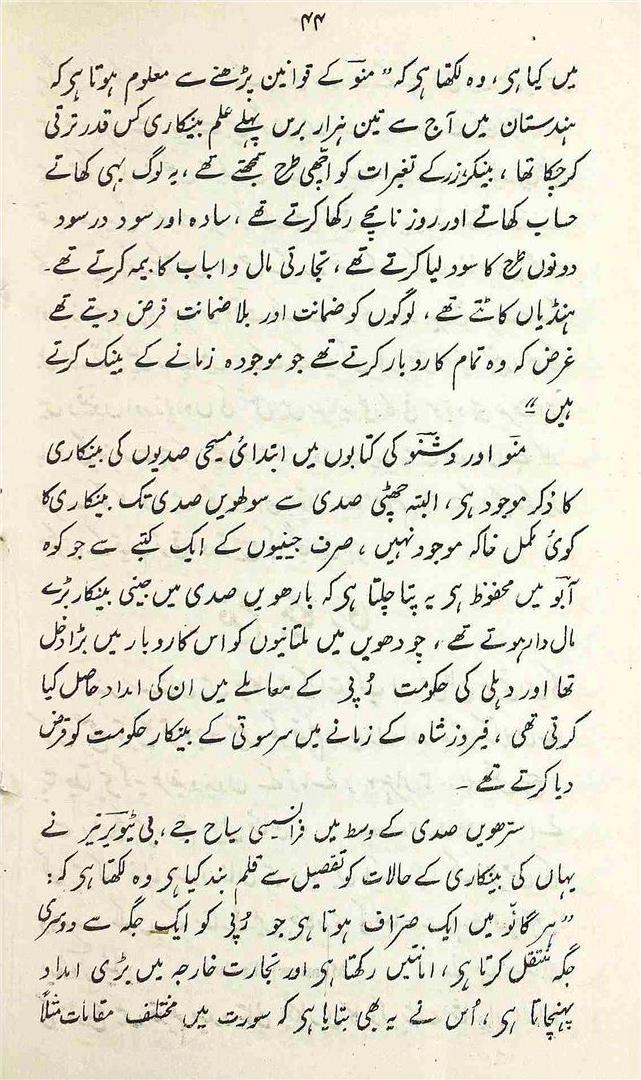 ۴۴
میں کیا ہی، وہ لکھتا ہی کہ "منو کے قوانین پڑھنے سے معلوم ہوتا ہی کہ
ہندستان میں آج سے تین ہزار برس پہلے علم بینکاری کس قدر ترقی
کرچکا تھا، بینکر زر کے تغیرات کو اچھی طرح سمجھتے تھے، یہ لوگ بہی کھاتے
حساب کھاتے اور روز نامچے رکھا کرتے تھے، سادہ اور سود در سود
دونوں طرح کا سود لیا کرتے تھے، تجارتی مال و اسباب کا بیمہ کرتے تھے۔
ہنڈیاں کاٹتے تھے، لوگوں کو ضمانت اور بلا ضمانت قرض دیتے تھے
غرض کہ وہ تمام کاروبار کرتے تھے جو موجودہ زمانے کے بینک کرتے
ہیں"
منو اور وشنو کی کتابوں میں ابتدائی مسیحی صدیوں کی بینکاری
کا ذکر موجود ہی، البتہ چھٹی صدی سے سولھویں صدی تک بینکاری کا
کوئی مکمل خاکہ موجود نہیں، صرف جینیوں کے ایک کتبے سے جو کوہ
آبو میں محفوظ ہی یہ پتا چلتا ہی کہ بارھویں صدی میں جینی بینکار بڑے
مال دار ہوتے تھے، چودھویں میں ملتانیوں کو اس کاروبار میں بڑا دخل
تھا اور دہلی کی حکومت رُپی کے معاملے میں ان کی امداد حاصل کیا
کرتی تھی، فیروز شاہ کے زمانے میں سرسوتی کے بینکار حکومت کو قرض
دیا کرتے تھے۔
سترھویں صدی کے وسط میں فرانسیسی سیاح جے، بی ٹیویرنیر نے
یہاں کی بینکاری کے حالات کو تفصیل سے قلم بند کیا ہی وہ لکھتا ہی کہ:
"ہر گانو میں ایک صرّاف ہوتا ہی جو رُپی کو ایک جگہ سے دوسری
جگہ منتقل کرتا ہی، امانتیں رکھتا ہی اور تجارت خارجہ میں بڑی امداد
پہنچاتا ہی، اُس نے یہ بھی بتایا ہی کہ سورت میں مختلف مقامات مثلاً